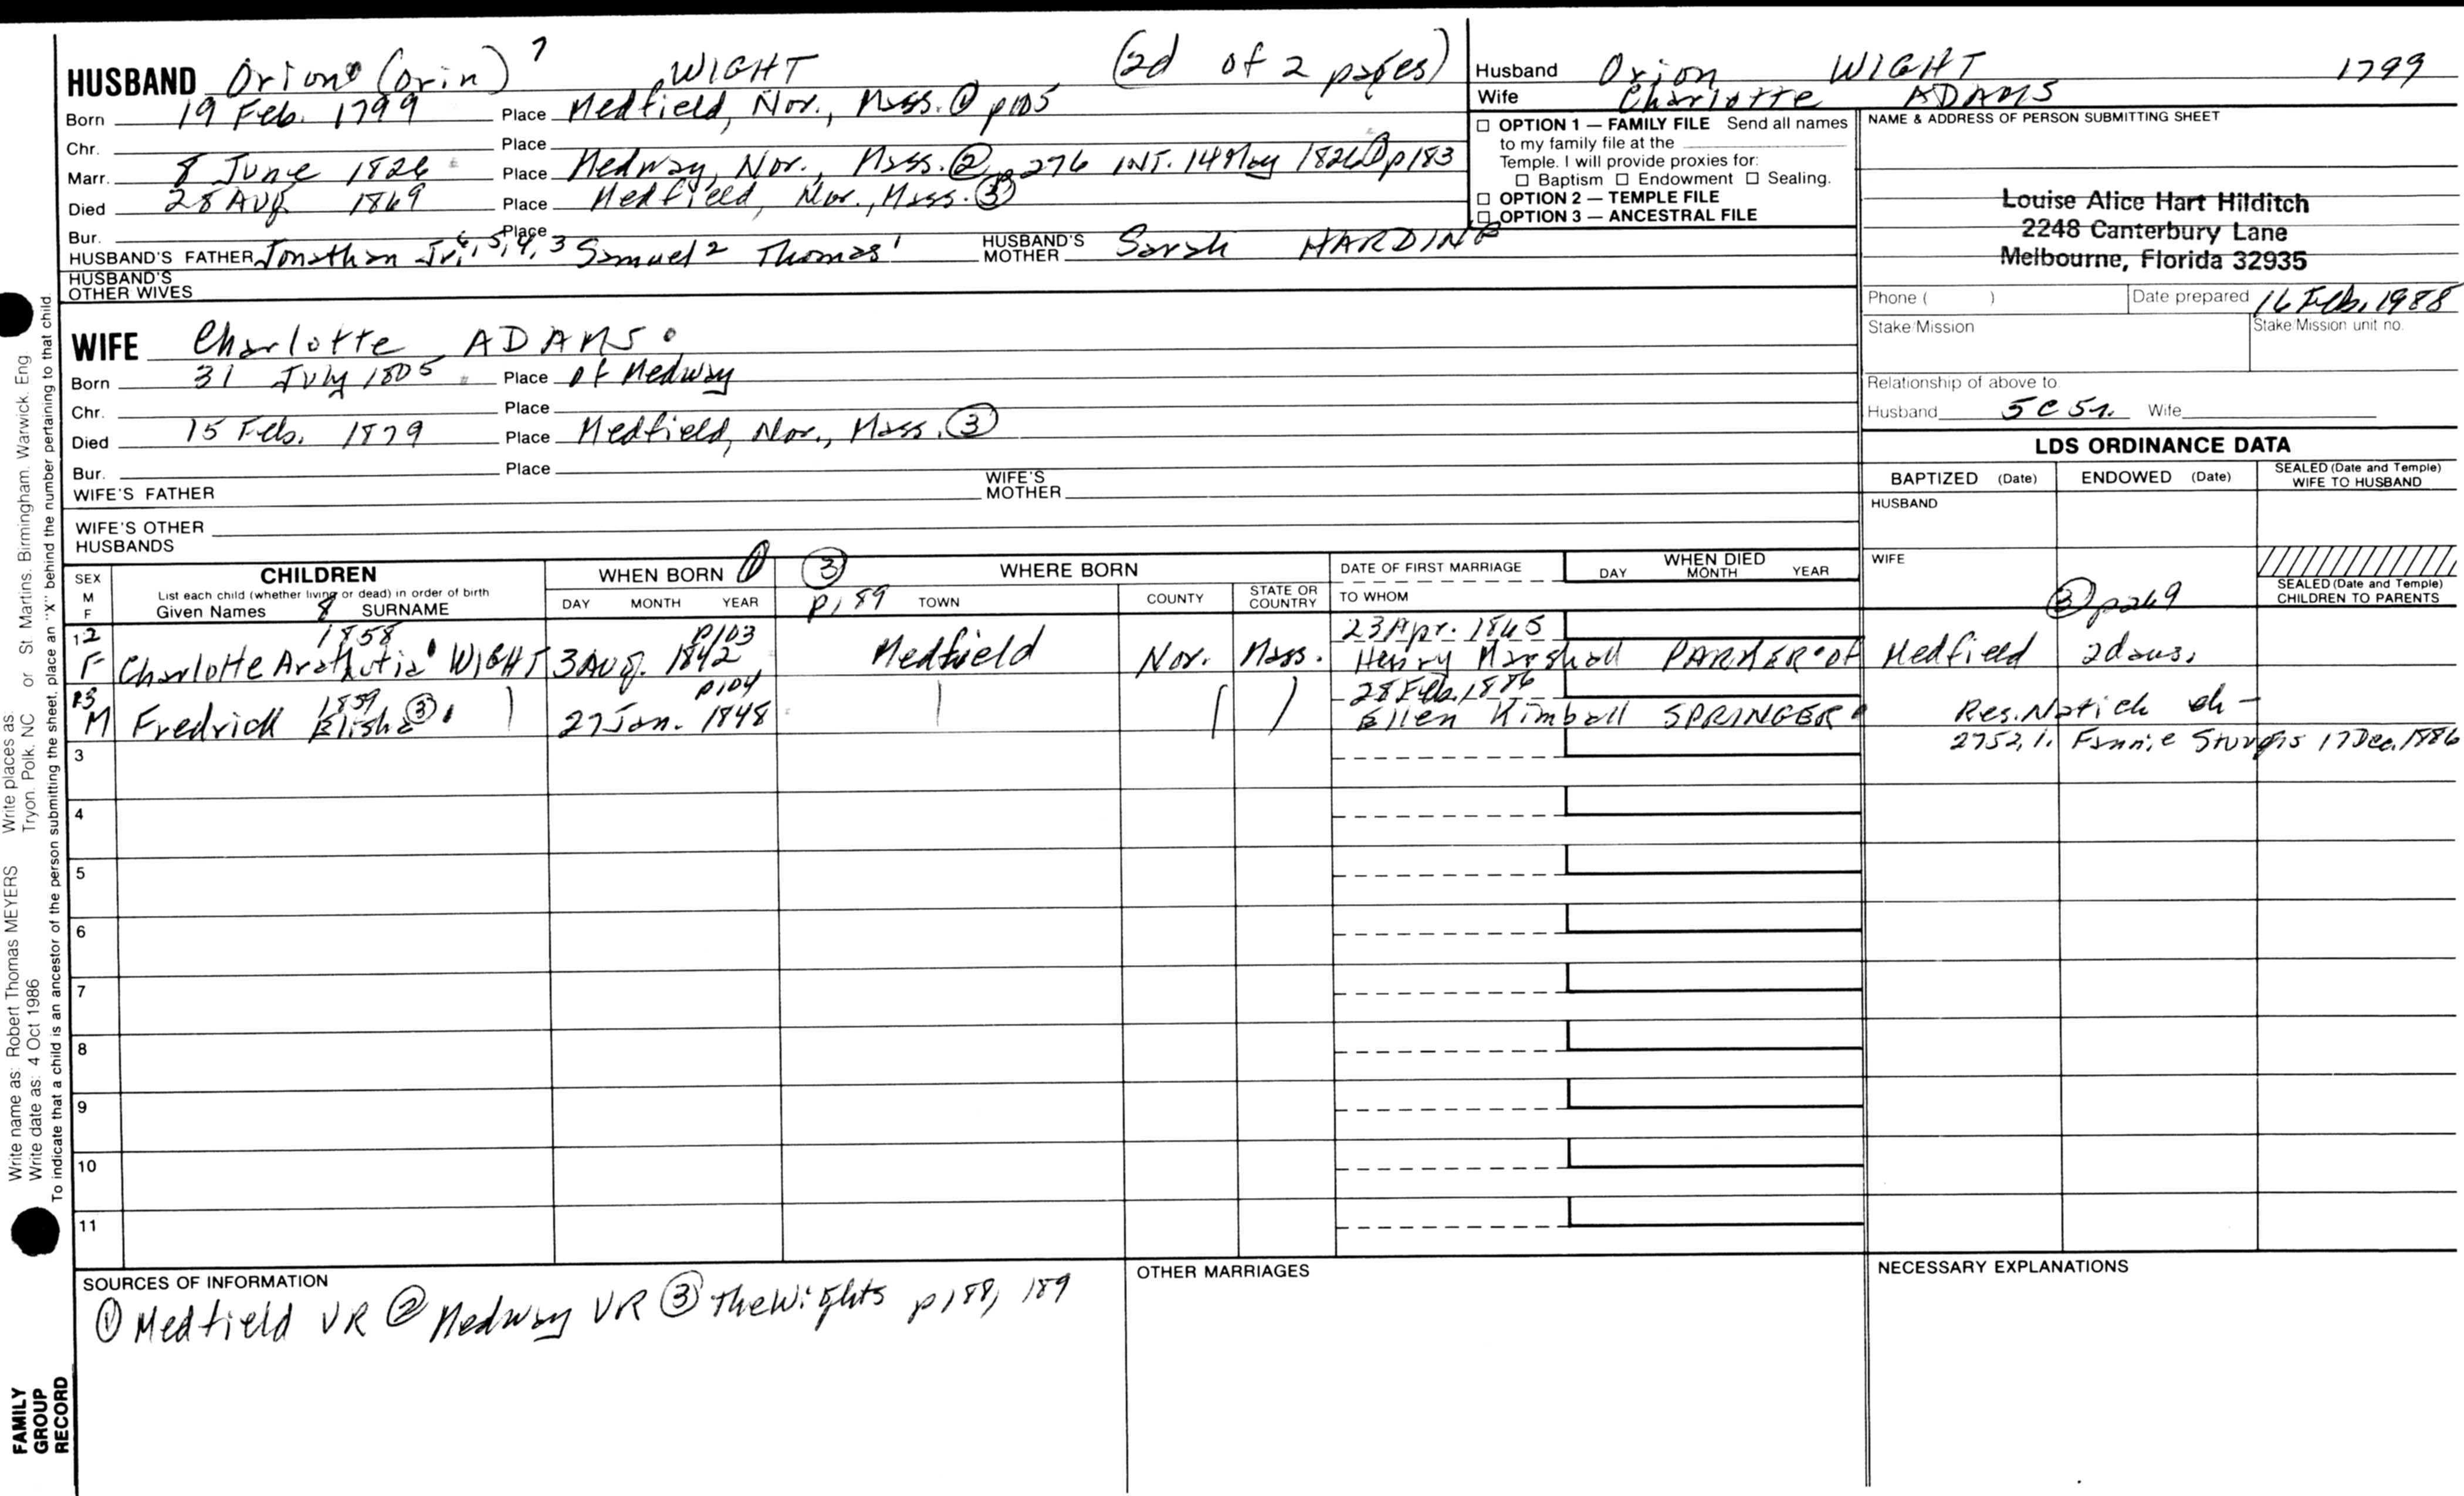 HUSBAND Orion (Orin) 7 WIGHT (2d of 2 pages)
Born 19 Feb. 1799 Place Medfield, Nor., Mass. ① p105
Chr. Place
Marr. 8 June 1826 Place Medway, Nor., Mass. ② p276 INT. 14 May 1826 ① p183
Died 28 Aug 1869 Place Medfield, Nor., Mass. ③
Bur. Place
HUSBAND'S FATHER Jonathan Jr. 6, 5, 4, 3 Samuel 2 Thomas 1 HUSBAND'S MOTHER Sarah HARDING
HUSBAND'S OTHER WIVES
WIFE Charlotte ADAMS
Born 31 July 1805 Place of Medway
Chr. Place
Died 15 Feb. 1879 Place Medfield, Nor., Mass. ③
Bur. Place
WIFE'S FATHER WIFE'S MOTHER
WIFE'S OTHER HUSBANDS
Husband Orion WIGHT 1799
Wife Charlotte ADAMS
☐ OPTION 1 — FAMILY FILE Send all names
to my family file at the
Temple. I will provide proxies for:
☐ Baptism ☐ Endowment ☐ Sealing.
☐ OPTION 2 — TEMPLE FILE
☐ OPTION 3 — ANCESTRAL FILE
NAME & ADDRESS OF PERSON SUBMITTING SHEET
Louise Alice Hart Hilditch
2248 Canterbury Lane
Melbourne, Florida 32935
Phone ( ) Date prepared 16 Feb. 1988
Stake/Mission Stake/Mission unit no.
Relationship of above to
Husband 5C5r. Wife
LDS ORDINANCE DATA
BAPTIZED (Date) ENDOWED (Date) SEALED (Date and Temple) WIFE TO HUSBAND
HUSBAND
WIFE
SEALED (Date and Temple) CHILDREN TO PARENTS
③ p269
SEX M F CHILDREN WHEN BORN ① ③ WHERE BORN DATE OF FIRST MARRIAGE WHEN DIED
List each child (whether living or dead) in order of birth
Given Names 8 SURNAME DAY MONTH YEAR p189 TOWN COUNTY STATE OR COUNTRY TO WHOM DAY MONTH YEAR
12 1858 p103 23 Apr. 1865
F Charlotte WIGHT 3 Aug. 1842 Medfield Nor. Mass. Henry Marshall PARKER of Medfield 2 daus.
13 1859 p104 28 Feb. 1886
M Fredrick Elisha ③ 27 Jan. 1848 Ellen Kimball SPRINGER Res. Natick ch -
2752, 1. Fannie Sturgis 17 Dec. 1886
3
4
5
6
7
8
9
10
11
SOURCES OF INFORMATION
① Medfield VR ② Medway VR ③ The Wights p188, 189
OTHER MARRIAGES
NECESSARY EXPLANATIONS
Write name as: Robert Thomas MEYERS Write places as: Tryon, Polk, NC or St Martins, Birmingham, Warwick, Eng
Write date as: 4 Oct 1986
To indicate that a child is an ancestor of the person submitting the sheet, place an "X" behind the number pertaining to that child.
FAMILY
GROUP
RECORD